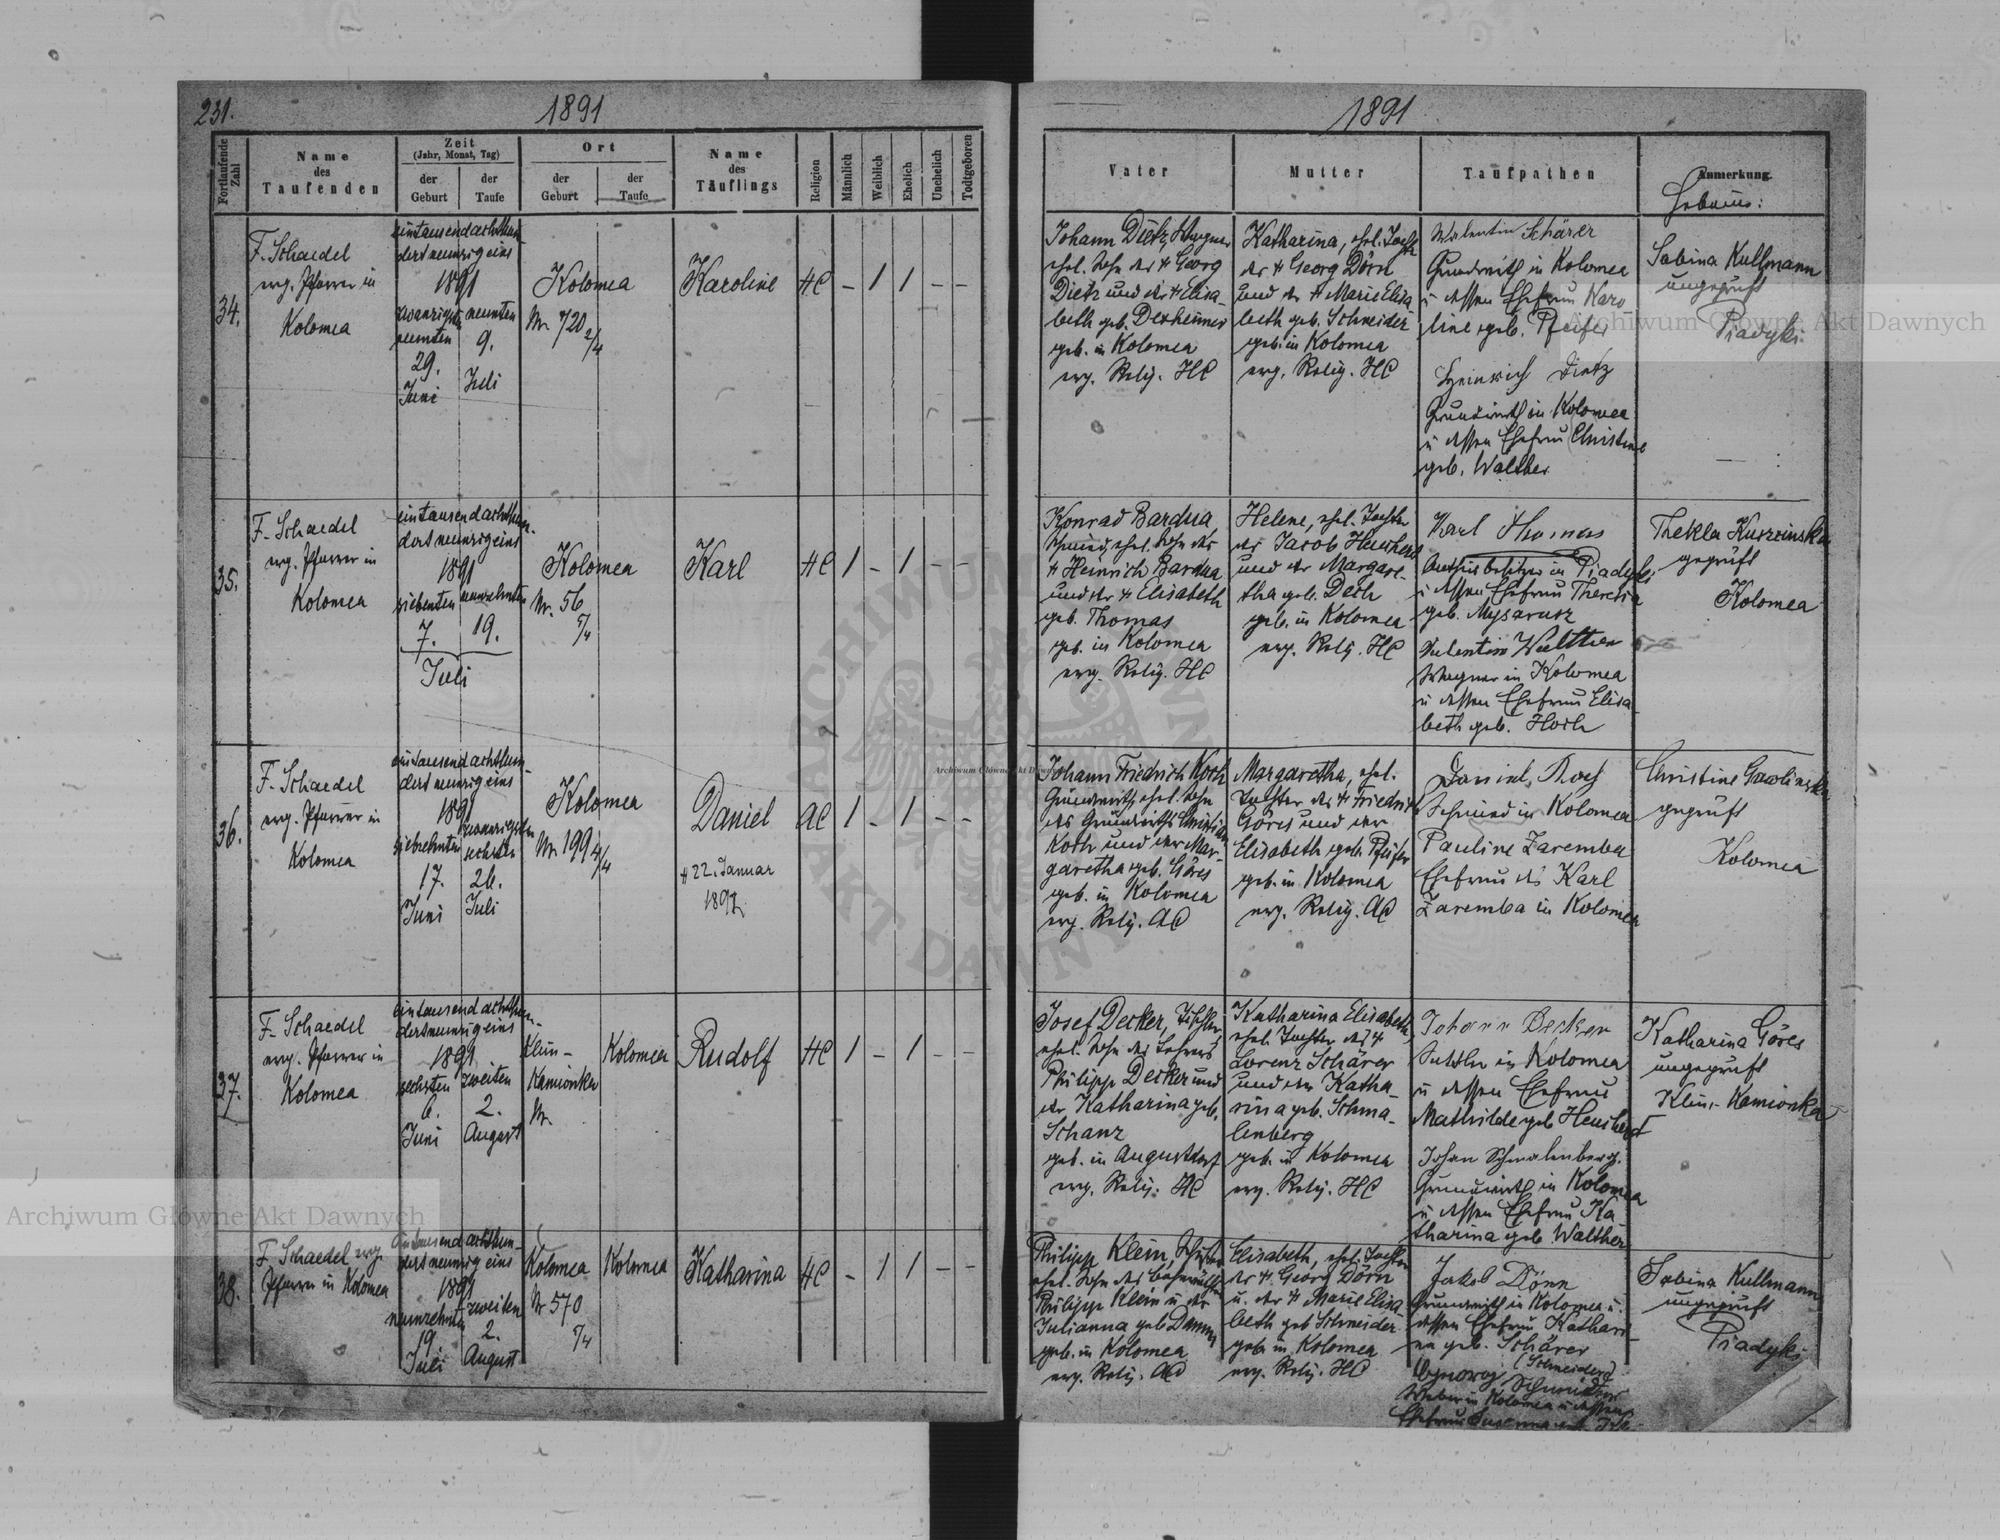 231.
1891
Fortlaufende Zahl
Name des Taufenden
Zeit
(Jahr, Monat, Tag)
der Geburt
der Taufe
Ort
der Geburt
der Taufe
Name des Täuflings
Religion
Männlich
Weiblich
Ehelich
Unehelich
Todtgeboren
34.
F. Schaedel
evg. Pfarrer in
Kolomea
eintausendachthun-
dertneunzigeins
1891
zwanzigsten neunten
neunten 9.
29.
Juni Juli
Kolomea
Nr. 720
2/4
Karoline
HC – 1 1 – –
35.
F. Schaedel
evg. Pfarrer in
Kolomea
eintausendachthun-
dertneunzigeins
1891
siebenten neunzehnten
7. 19.
Juli
Kolomea
Nr. 56
5/4
Karl
HC 1 – 1 – –
36.
F. Schaedel
evg. Pfarrer in
Kolomea
eintausendachthun-
dertneunzigeins
1891
siebzehnten zwanzigsten
sechsten
17. 26.
Juni Juli
Kolomea
Nr. 199
4/4
Daniel
22. Januar
AC 1 – 1 – –
37.
F. Schaedel
evg. Pfarrer in
Kolomea
eintausendachthun-
dertneunzigeins
1891
sechsten zweiten
6. 2.
Juni August
Klein-
Kamionka
Nr.
Kolomea
Rudolf
HC 1 – 1 – –
38.
F. Schaedel evg
Pfarrer in Kolomea
eintausendachthun-
dertneunzigeins
1891
neunzehnten zweiten
19 2.
Juli August
Kolomea
Nr 570
5/4
Kolomea
Katharina
HC – 1 1 – –
1891
Vater
Mutter
Taufpathen
Anmerkung
Hebamme:
Johann Dietz, Wagner
ehel. Sohn des † Georg
Dietz und der † Elisa-
beth geb. Dexheimer
geb. in Kolomea
evg. Relig. HC
Katharina, ehel. Tocht
der † Georg Dörn
und der † Marie Elisa
beth geb. Schneider
geb. in Kolomea
evg. Relig. HC
Valentin Schärer
Grundwirth in Kolomea
u dessen Ehefrau Karo
line geb. Pfeifer
Heinrich Dietz
Grundwirth in Kolomea
u dessen Ehefrau Christine
geb. Walther
Sabina Kullmann
ungeprüft
Piadyki
Konrad Bardua,
Schmied, ehel. Sohn des
† Heinrich Bardua
und der † Elisabeth
geb. Thomas
geb. in Kolomea
evg. Relig. HC
Helene, ehel. Tochter
des Jacob Heuchert
und der Margare-
tha geb. Deth
geb. in Kolomea
evg. Relig. HC
Karl Thomas
in Piadyki
u dessen Ehefrau Theresia
geb.
Valentin Walther
Wagner in Kolomea
u dessen Ehefrau Elisa
beth geb. Horh
Thekla
geprüft
Kolomea
Johann Friedrich Koth
Grundwirth, ehel. Sohn
des Grundwirths Christian
Koth und der Mar-
garetha geb. Göres
geb. in Kolomea
evg. Relig. AC
Margaretha, ehel.
Tochter des † Friedrich
Göres und der
Elisabeth geb. Pfeifer
geb. in Kolomea
evg. Relig. AC
Daniel
Schmied in Kolomea
Pauline Zaremba
Ehefrau des Karl
Zaremba in Kolomea
Christine Gawlinska
geprüft
Kolomea
Josef Decker, Tischler
ehel. Sohn des Lehrers
Philipp Decker und
der Katharina geb.
Schanz
geb. in Augustdorf
evg. Relig. HC
Katharina Elisabeth,
ehel. Tochter des †
Lorenz Schärer
und der Katha-
rina geb. Schma-
lenberg
geb. in Kolomea
evg. Relig. HC
Johann Decker
Sattler in Kolomea
u dessen Ehefrau
Mathilde geb Heuchert
Johan Schmalenberg.
Grundwirth in Kolomea
u dessen Ehefrau Ka
tharina geb Walther
Katharina Göres
ungeprüft
Klein-Kamionka
Philipp Klein,
ehel. Sohn des
Philipp Klein u der
Julianna geb Damm
geb. in Kolomea
evg. Relig. AC
Elisabeth, ehel. Tochter
der † Georg Dörn
u. der † Marie Elisa
beth geb Schneider
geb in Kolomea
evg. Relig. HC
Jakob Dörn
Grundwirth in Kolomea u.
dessen Ehefrau Kathari
na geb. Schärer
(Schneider)
Weber in Kolomea u dessen
Ehefrau Susanna geb.
Sabina Kullmann
ungeprüft
Piadyki
Archiwum Główne Akt Dawnych
Archiwum Główne Akt Dawnych
Archiwum Główne Akt Dawnych
ARCHIWUM
AKT DAWNYCH